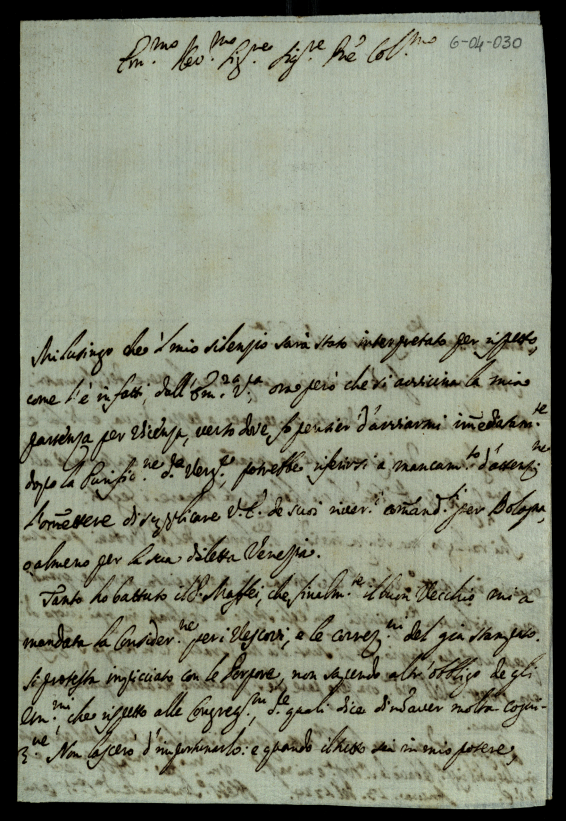 Em.mo Rev.mo Sig.re Sig.re Prñe Col.mo
6-04-030
Mi lusingo che il mio silenzio sarà stato interpretato per rispetto,
come l'è in fatti, dall'Em.za V.ra ora però che si avvicina la mia
partenza per Vicenza, verso dove fo pensier d'avviarmi im̃ediatam.te
dopo la Purific.ne d.a Verg.e, potrebbe riferirsi a mancam.to d'attenz.ne
l'om̃ettere di supplicare V.E. de suoi river.i com̃and.i per Bologna,
o almeno per la sua diletta Venezia.
Tanto ho battuto il P. Maffei, che finalm.te il buon Vecchio mi a
mandata la Consider.ne per i Vescovi, e le correz.ni del già stampato.
Si protesta impicciato con le Porpore, non sapendo altr'obbligo de gli
Em.mi, che rispetto alle Congreg.ni, d.e quali dice di n'aver molta cogni-
z.ne Non lascerò d'importunarlo: e quando il tutto sia in mio potere,